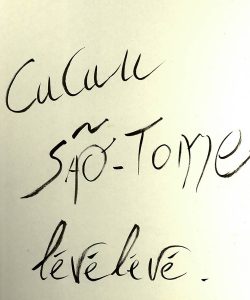 Cucuu
SÃO-TOME
lévélévé.